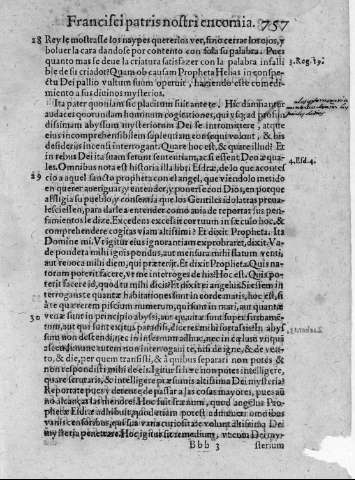 Francisci patris nostri encomia. 757
28 Rey le mostrasse los naypes que erlos ver, sino cerrar los ojos, y
boluer la cara dandose por contento con sola su palabra. Pues
quanto mas se deue la criatura satisfazer con la palabra infalli 3. Reg. 19.
ble de su criador? Quam ob causam Propheta Helias in conspe
ctu Dei pallio vultum suum operuit, haziendo este comedi-
miento a sus diuinos mysterios.
Ita pater quoniam sic placitum fuit ante te. Hic damnantur
audaces quorundam hominum cogitationes, qui vsque ad profun
dissimam abyssum mysteriorum Dei se intromittere, atque
eius incomprehensibilem sapientiam consequi volunt, & his
desiderijs incensi interrogant: Quare hoc est, & quare illud? Et
in rebus Dei ita suam ferunt sententiam, ac si essent Deo æqua-
les. Omnibus nota est historia illa libri Esdræ, de lo que aconte 4. Esd. 4.
29 cio a aquel sancto propheta con el angel, que viendolo metido
en querer aueriguar, y entender, y ponerse con Dios, en porque
affligia su pueblo, y consentia que los Gentiles idolatras preua-
lesciessen, para darle a entender como auia de reportar sus pen-
samientos le dize. Excedens excessit cor tuum in sæculo hoc, &
comprehendere cogitas viam altissimi? Et dixit Propheta. Ita
Domine mi. Vt igitur eius ignorantiam exprobraret, dixit. Va-
de pondera mihi ignis pondus, aut mensura mihi flatum venti,
aut reuoca mihi diem, qui præterijt. Et dixit Propheta. Quis na-
torum poterit facere, vt me interroges de his? Hoc est. Quis po-
terit facere id, quod tu mihi dicis? Et dixit ei angelus. Si essem in
terrogans te quantæ habitationes sunt in corde maris, hoc est, si
à te quærerem piscium numerum, qui sunt in mari, aut quantæ
30 venæ sunt in principio abyssi, aut quantæ sunt super firmamen-
tum, aut qui sunt exitus paradisi, diceres mihi forsitasse: In abys
sum non descendi, nec in infernum adhuc, nec in cælum vnquã
ascendi: nunc autem non interrogaui te, nisi de igne, & de ven-
to, & die, per quem transisti, & à quibus separari non potes &
non respondisti mihi de eis. Igitur si hæc non potes intelligere,
quare scrutaris, & intelligere præsumis altissima Dei mysteria?
Reportate pues y dexate de passar a las cosas mayores, pues aũ
no alcanças las menores. Hoc fuit frænum, quod angelus Pro-
phetæ Esdræ adhibuit, quod etiam potest adhiberi omnibus
vanis censoribus, qui sua varia curiositate volunt altissima Dei
mysteria penetrare. Hoc igitur sit remedium, vt cum Dei my-
Bbb 3 sterium